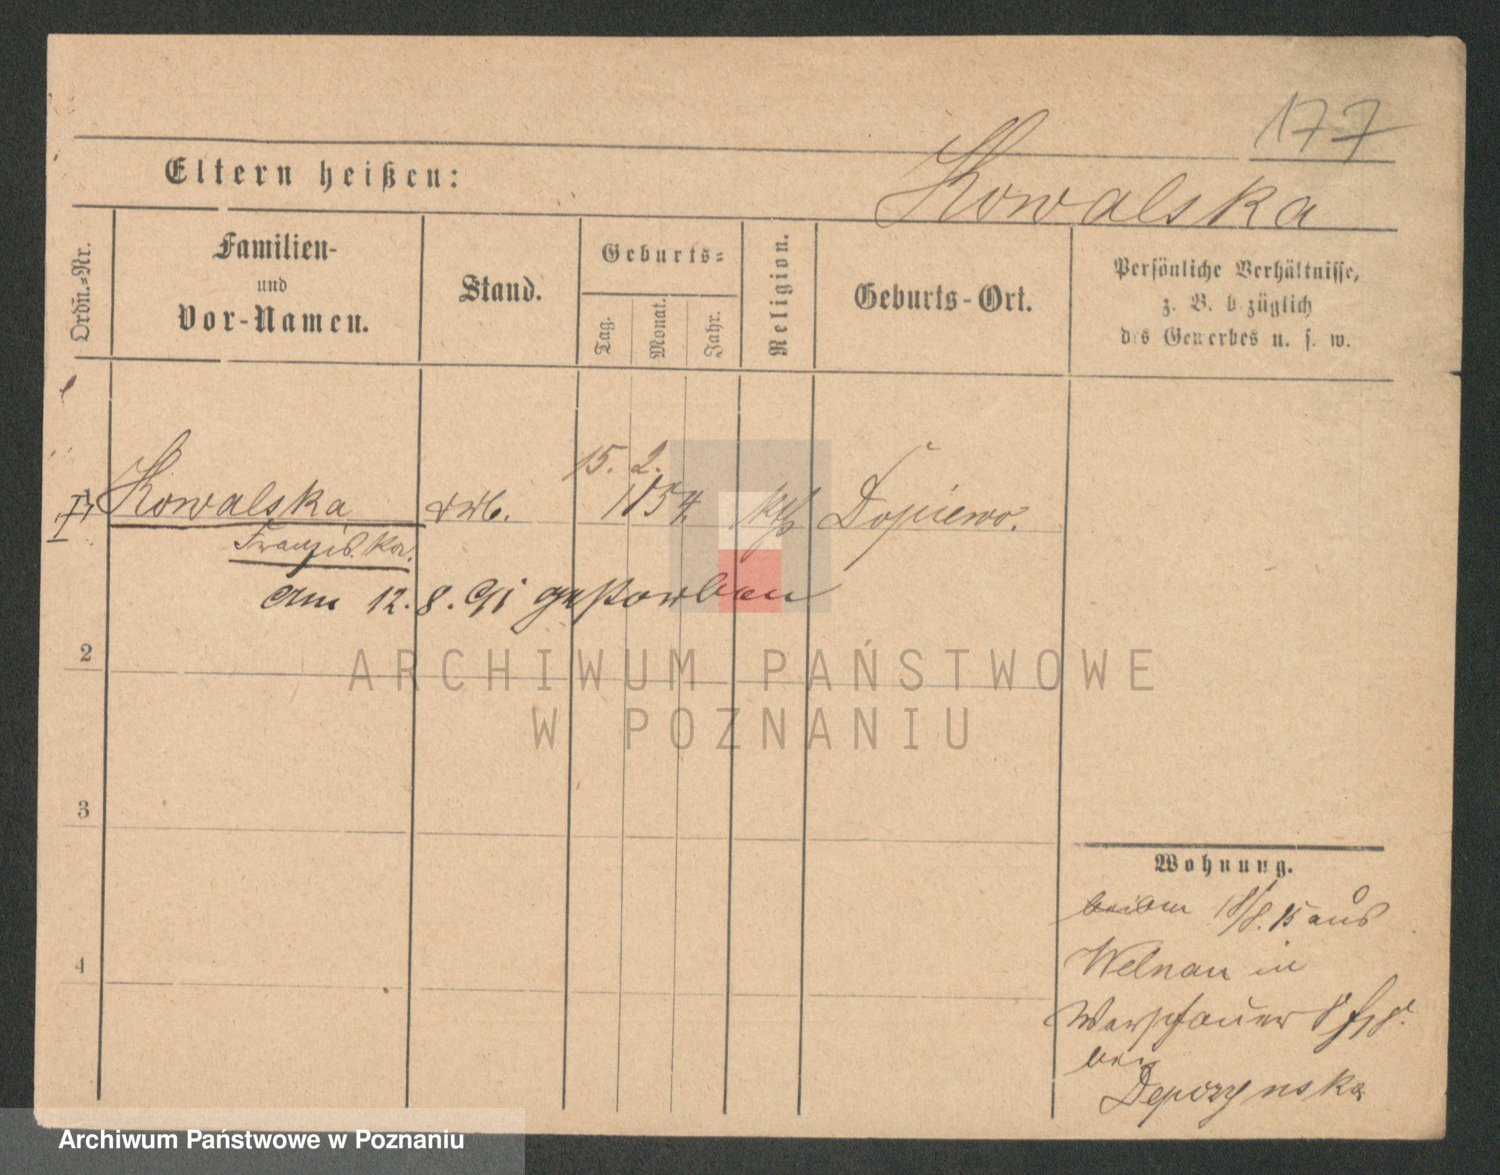 177
Eltern heißen:
Kowalska
Ordn.-Nr.
Familien-
und
Vor-Namen.
Stand.
Geburts-
Tag.
Monat.
Jahr.
Religion.
Geburts-Ort.
Persönliche Verhältnisse,
z. B. bezüglich
des Gewerbes u. s. w.
15. 2.
Kowalska
1854.
kth
Dopiewo.
Franziska.
am 12.8.91 gestorben
2
ARCHIWUM PAŃSTWOWE
W POZNANIU
3
Wohnung.
18/8.85 aus
4
Welnau in
Warschauer
bei
Depczynska
Archiwum Państwowe w Poznaniu